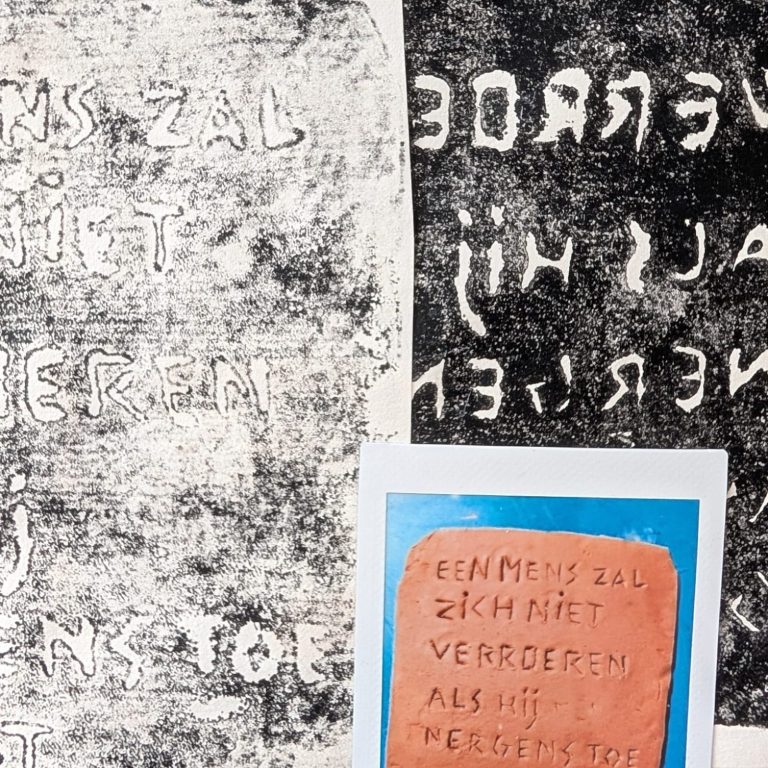 ENS ZAL
NIET
EREN
j
ENS TOE
T
VERROE
ALS Hij
NERGEN
EEN MENS ZAL
ZiCH NiET
VERROEREN
ALS Hij
NERGENS TOE